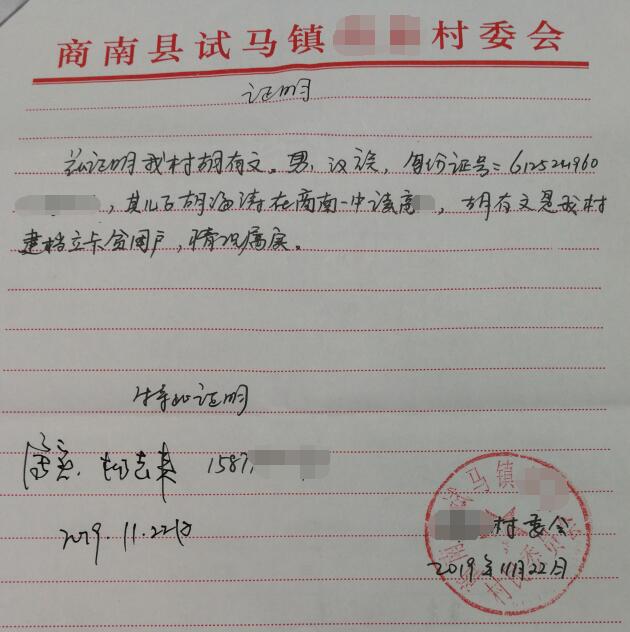 商南县试马镇 村委会
证明
兹证明我村胡有文。男,汉族,身份证号:6125241960
,其儿子胡海涛在商南一中读高 ,胡有文是我村
建档立卡贫困户,情况属实。
特此证明
1587
2019.11.22日
村委会
2019年11月22日
试马镇